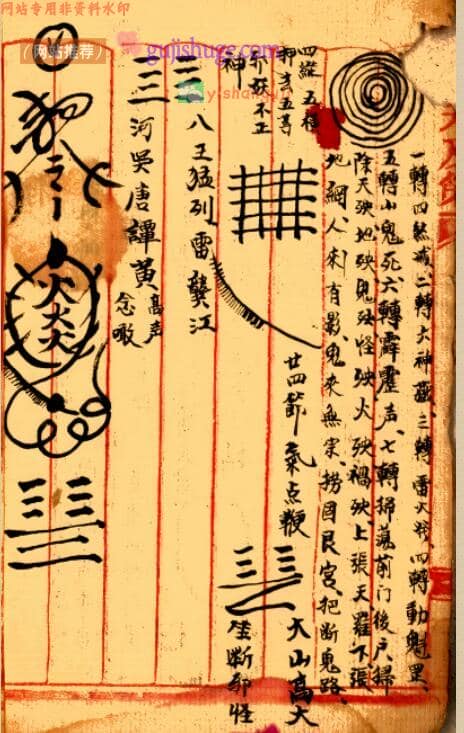 网站专用非资料水印
（网站推荐）
gujishuge.com
一轉四煞滅、二轉六神藏、三轉雷火發、四轉動魁罡、
五轉小鬼死、六轉霹靂声、七轉掃蕩前门後户
除天殃地殃鬼殃怪殃火殃禍殃、上張天羅下張
地網、人来有影、鬼來無宗、艮宫、把断鬼路、
四縱五橫
押去五
邪妖不正
神
廿四節氣点鞭
大山高大
坐断邪怪
八王猛列雷龔江
河吳唐譚黃
高声
念